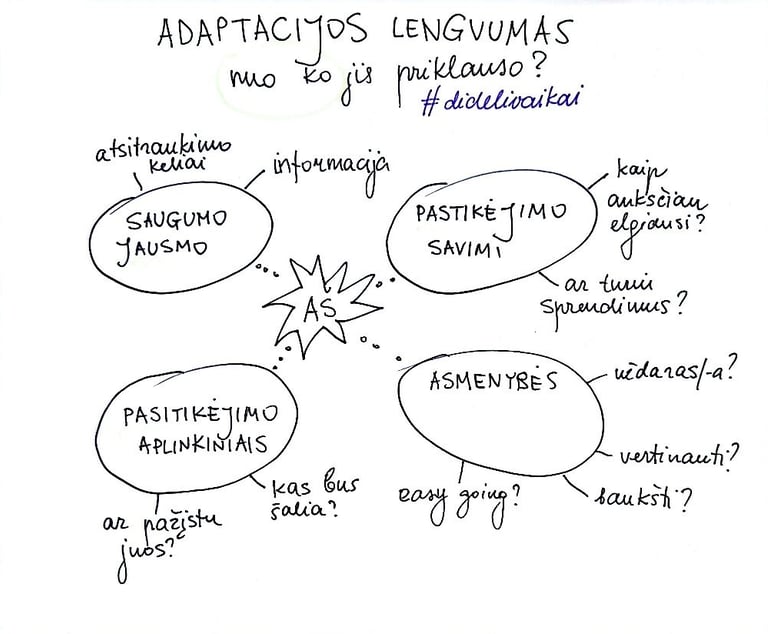 ADAPTACIJOS LENGVUMAS
nuo ko jis priklauso?
#didelivaikai
atsitraukimo
keliai
informacija
SAUGUMO
JAUSMO
PASTIKĖJIMO
SAVIMI
kaip
anksčiau
elgiausi?
ar turiu
sprendimus?
AŠ
PASITIKĖJIMO
APLINKINIAIS
ar pažįstu
juos?
kas bus
šalia?
ASMENYBĖS
uždaras/-a?
vertinanti?
šaukšti?
easy going?